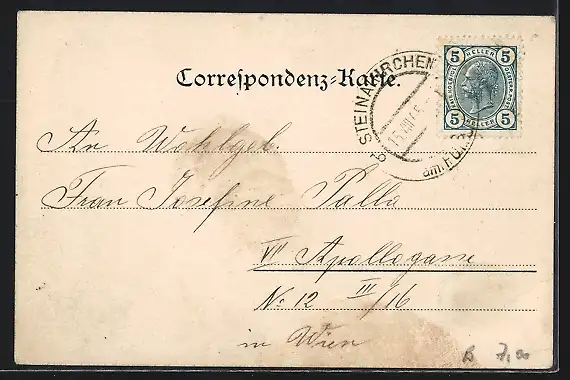 Correspondenz-Karte.
5 HELLER 5
5 HELLER 5
STEINAKIRCHEN
am FORST
An Wohlgeb.
Frau Josefine Palla
VII Apollogasse
No 12 III/16
in Wien
7,00